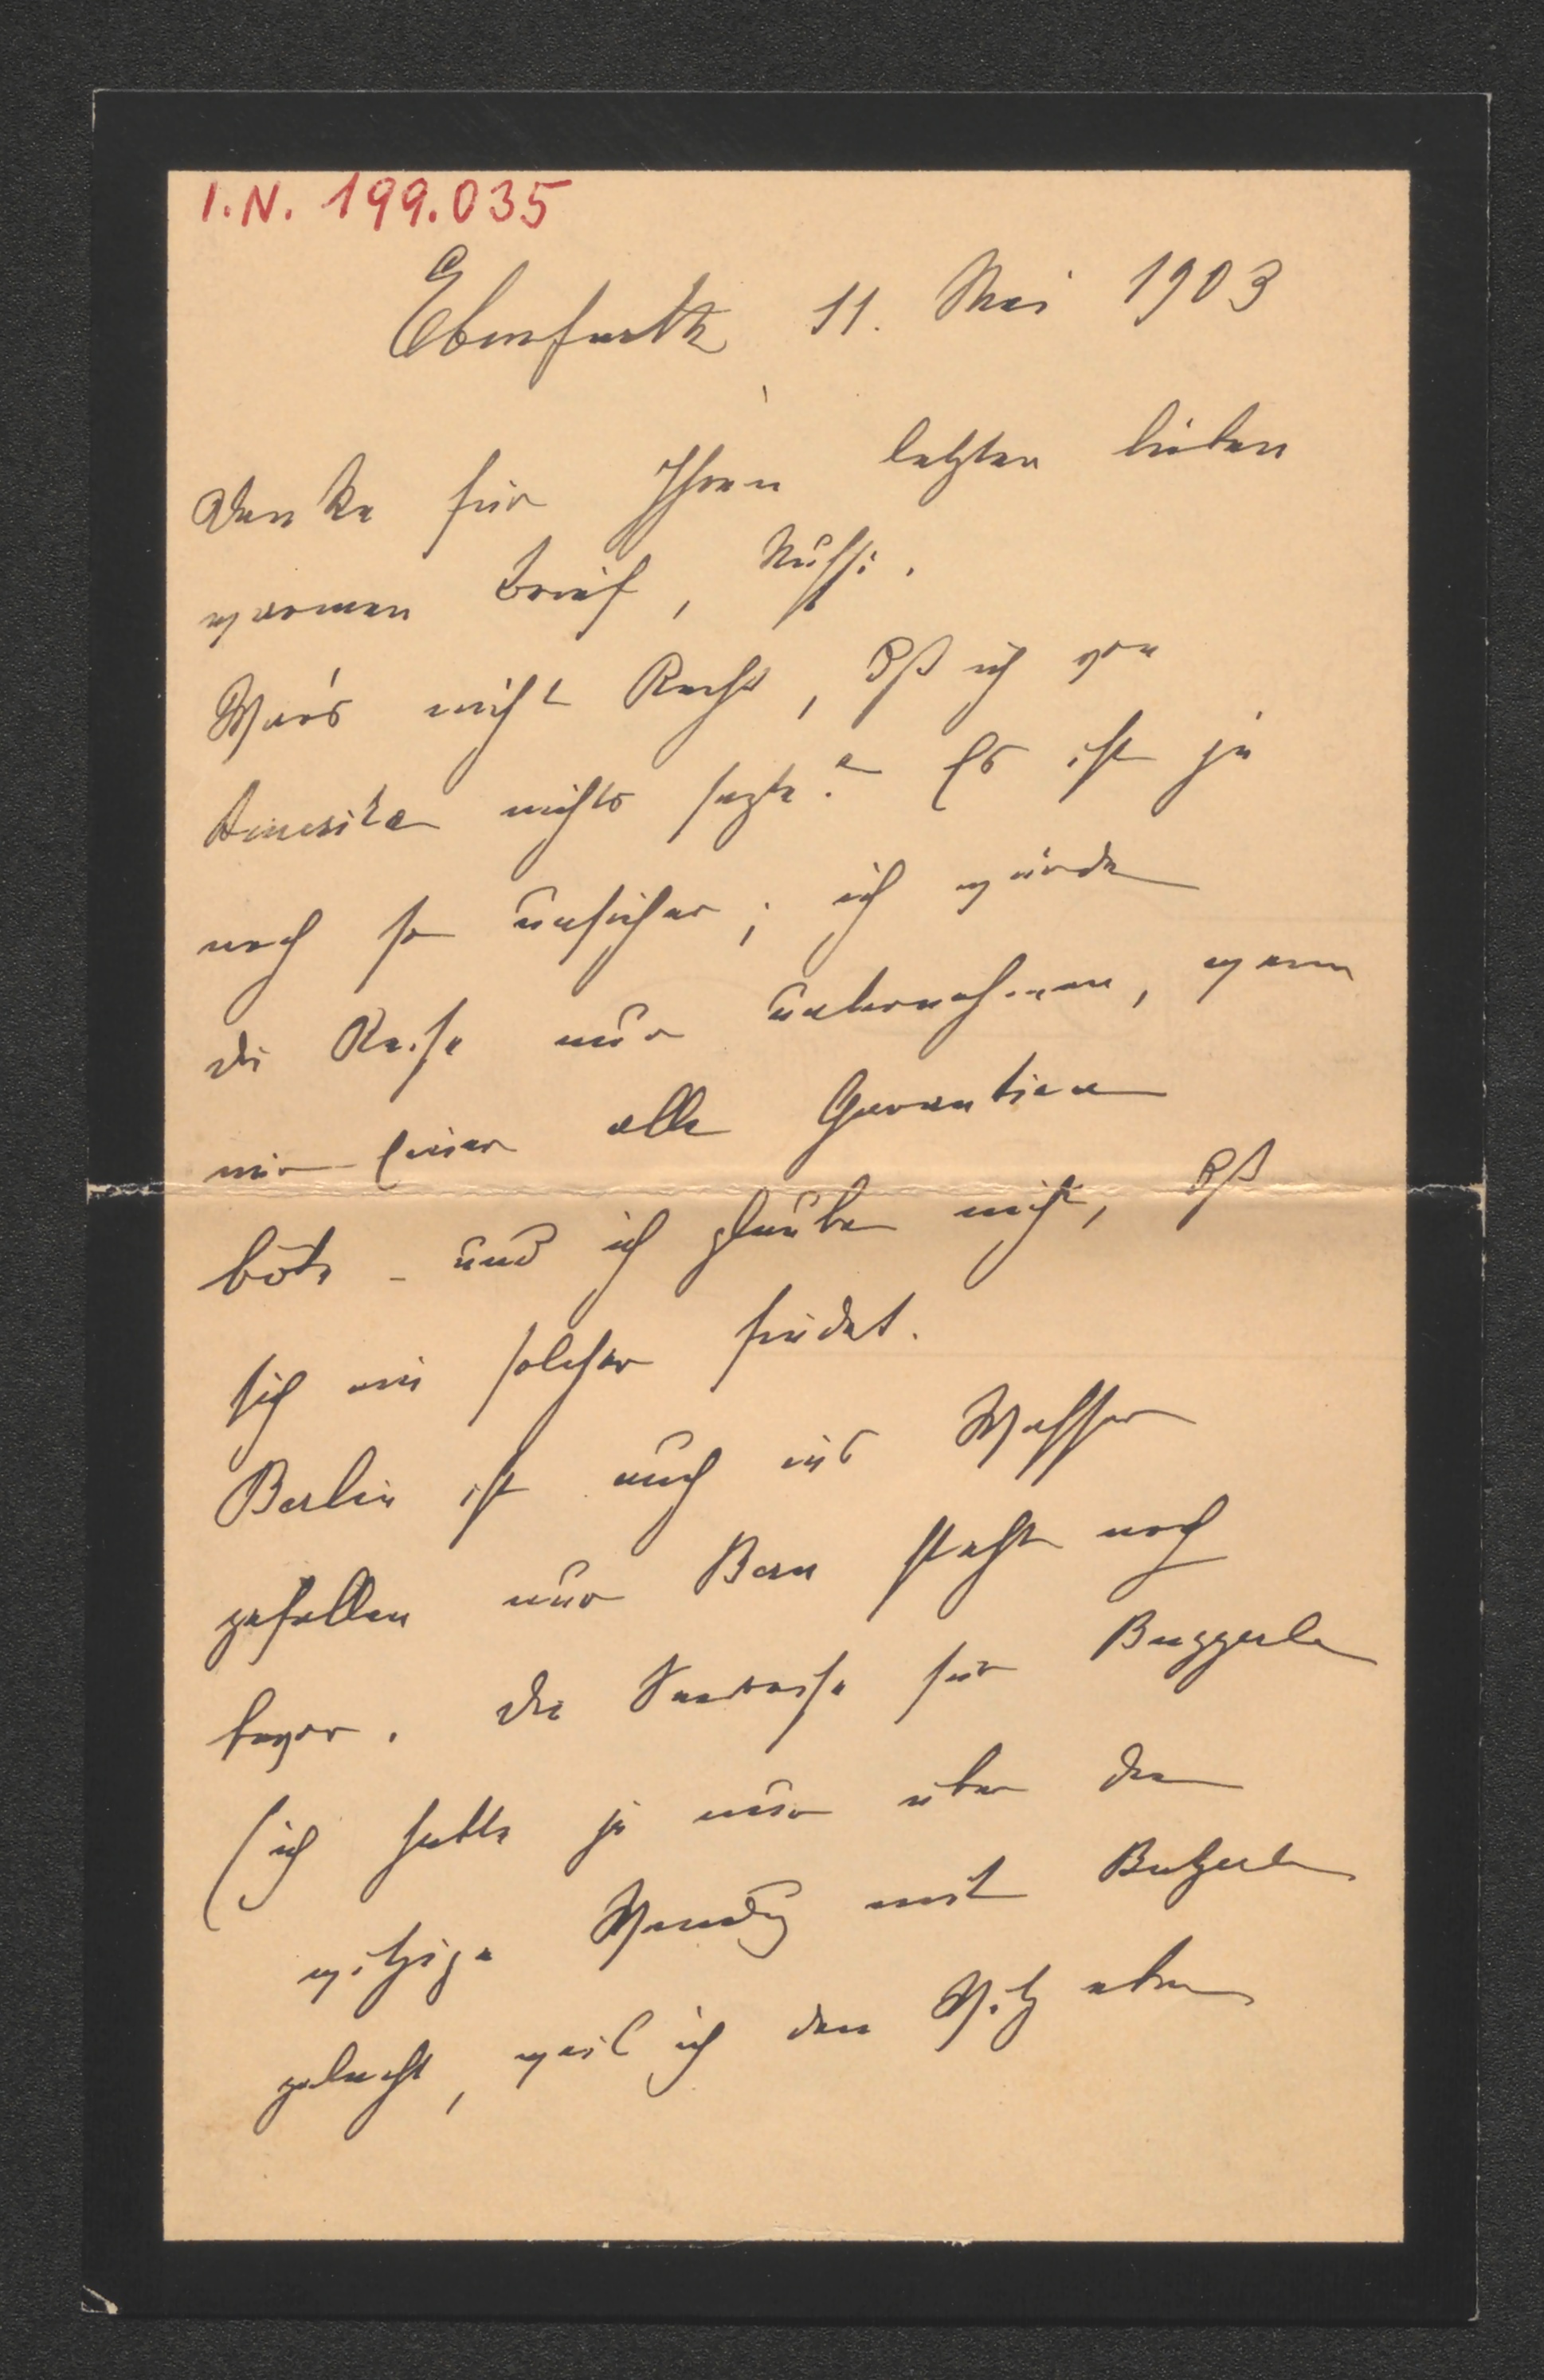 I.N. 199.035
Ebenfurth 11. Mai 1903
Danke für Ihren letzten lieben
warmen Brief, Nussi.
War's nicht Recht, dß ich von
Amerika nichts sagte? Es ist ja
noch so unsicher; ich würde
die Reise nur unternehmen, wenn
mir Einer alle Garantien
böte - und ich glaube nicht, dß
sich ein solcher findet.
Berlin ist auch ins Wasser
gefallen nur Bern steht noch
bevor. Die Seereise für
(ich hatte ja nur über die
witzige Wendg mit
gelacht, weil ich den Witz eben